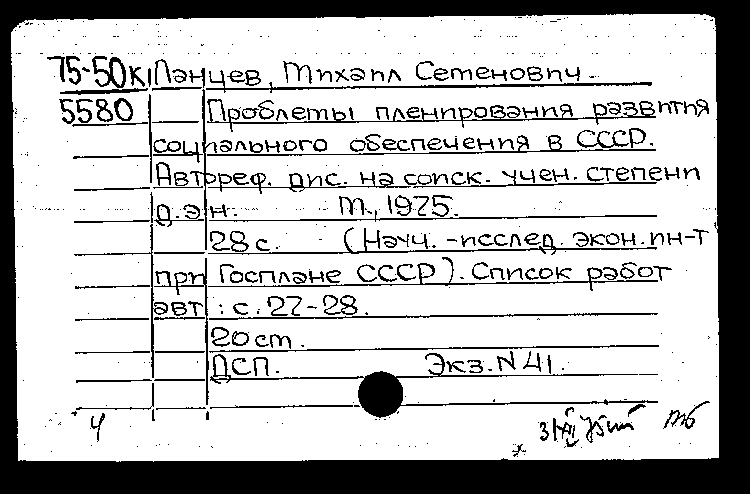 75-50к Ланцев, Михаил Семенович.
5580 Проблемы планирования развития
социального обеспечения в СССР.
Автореф. дис. на соиск. учен. степени
д.э.н. М., 1975.
28 с. (Науч.-исслед. экон. ин-т
при Госплане СССР). Список работ
авт.: с. 27-28.
20 см.
ДСП. Экз. N 41.
4